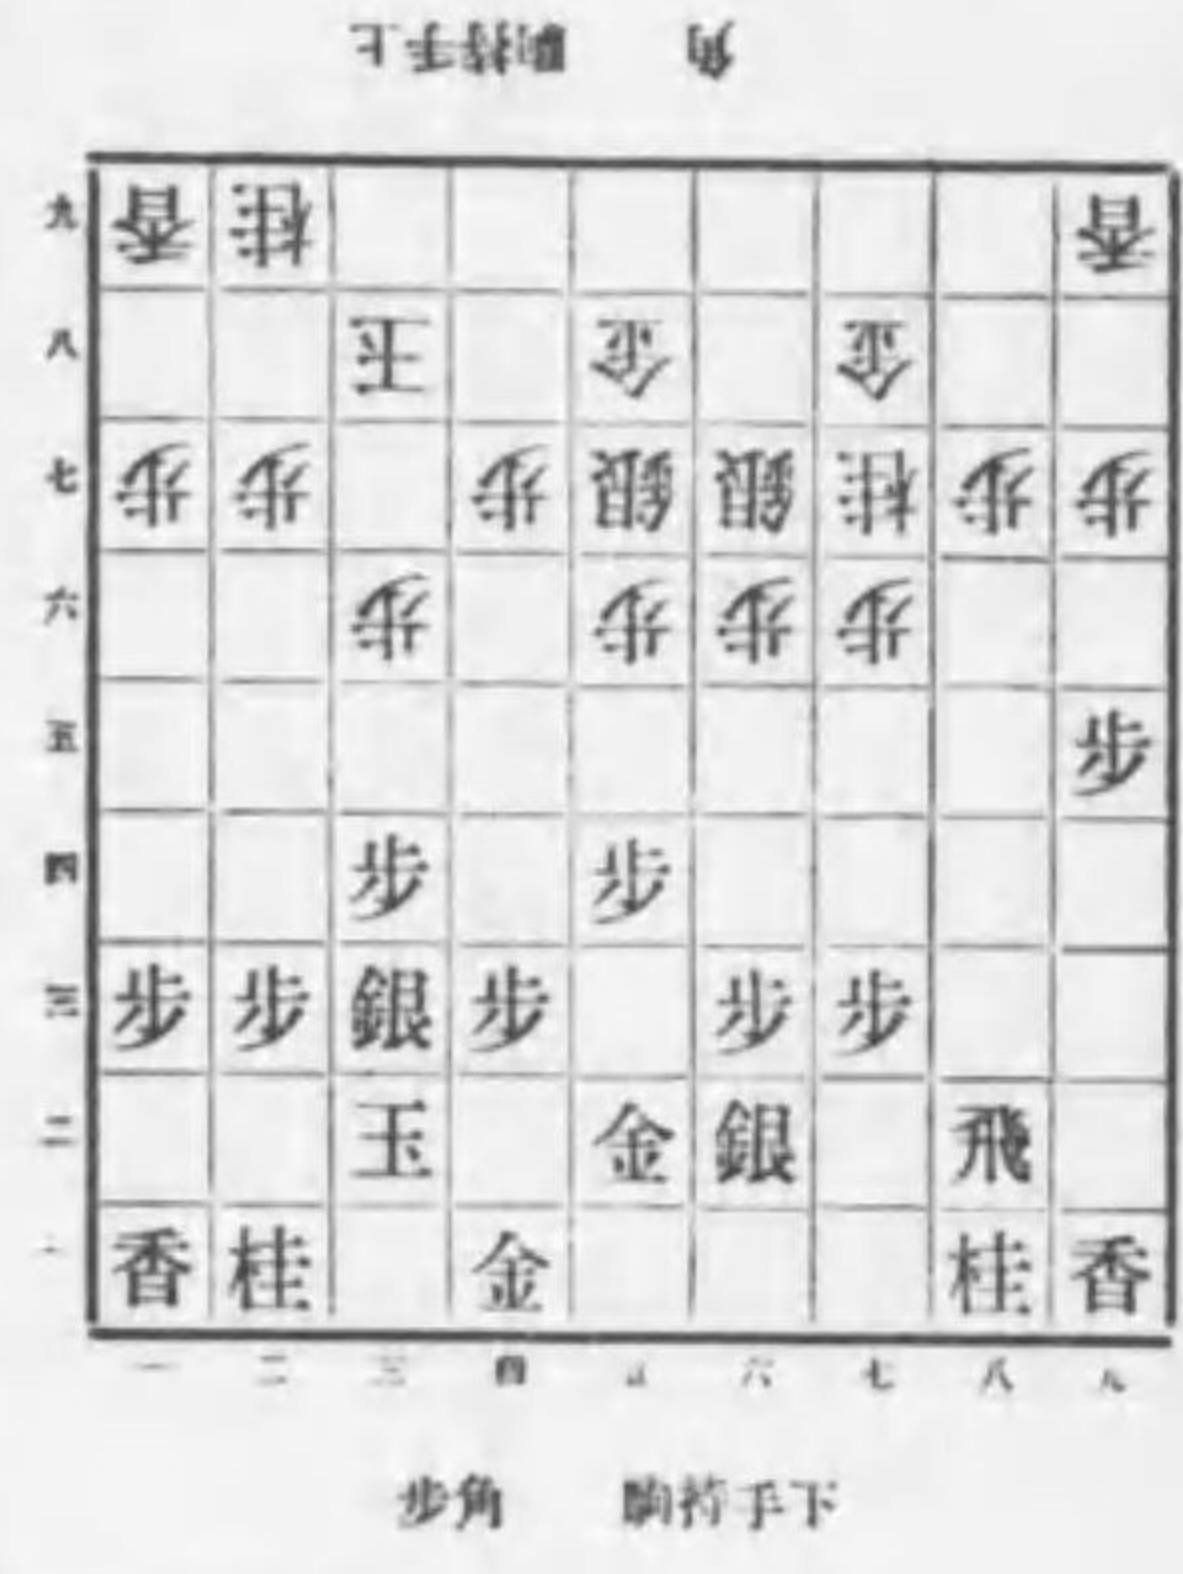 角　上手持駒
九 香 桂 香
八 王 金 金
七 歩 歩 歩 銀 銀 桂 歩 歩
六 歩 歩 歩 歩
五 歩
四 歩 歩
三 歩 歩 銀 歩 歩 歩
二 玉 金 銀 飛
一 香 桂 金 桂 香
一 二 三 四 五 六 七 八 九
歩角　駒持手下